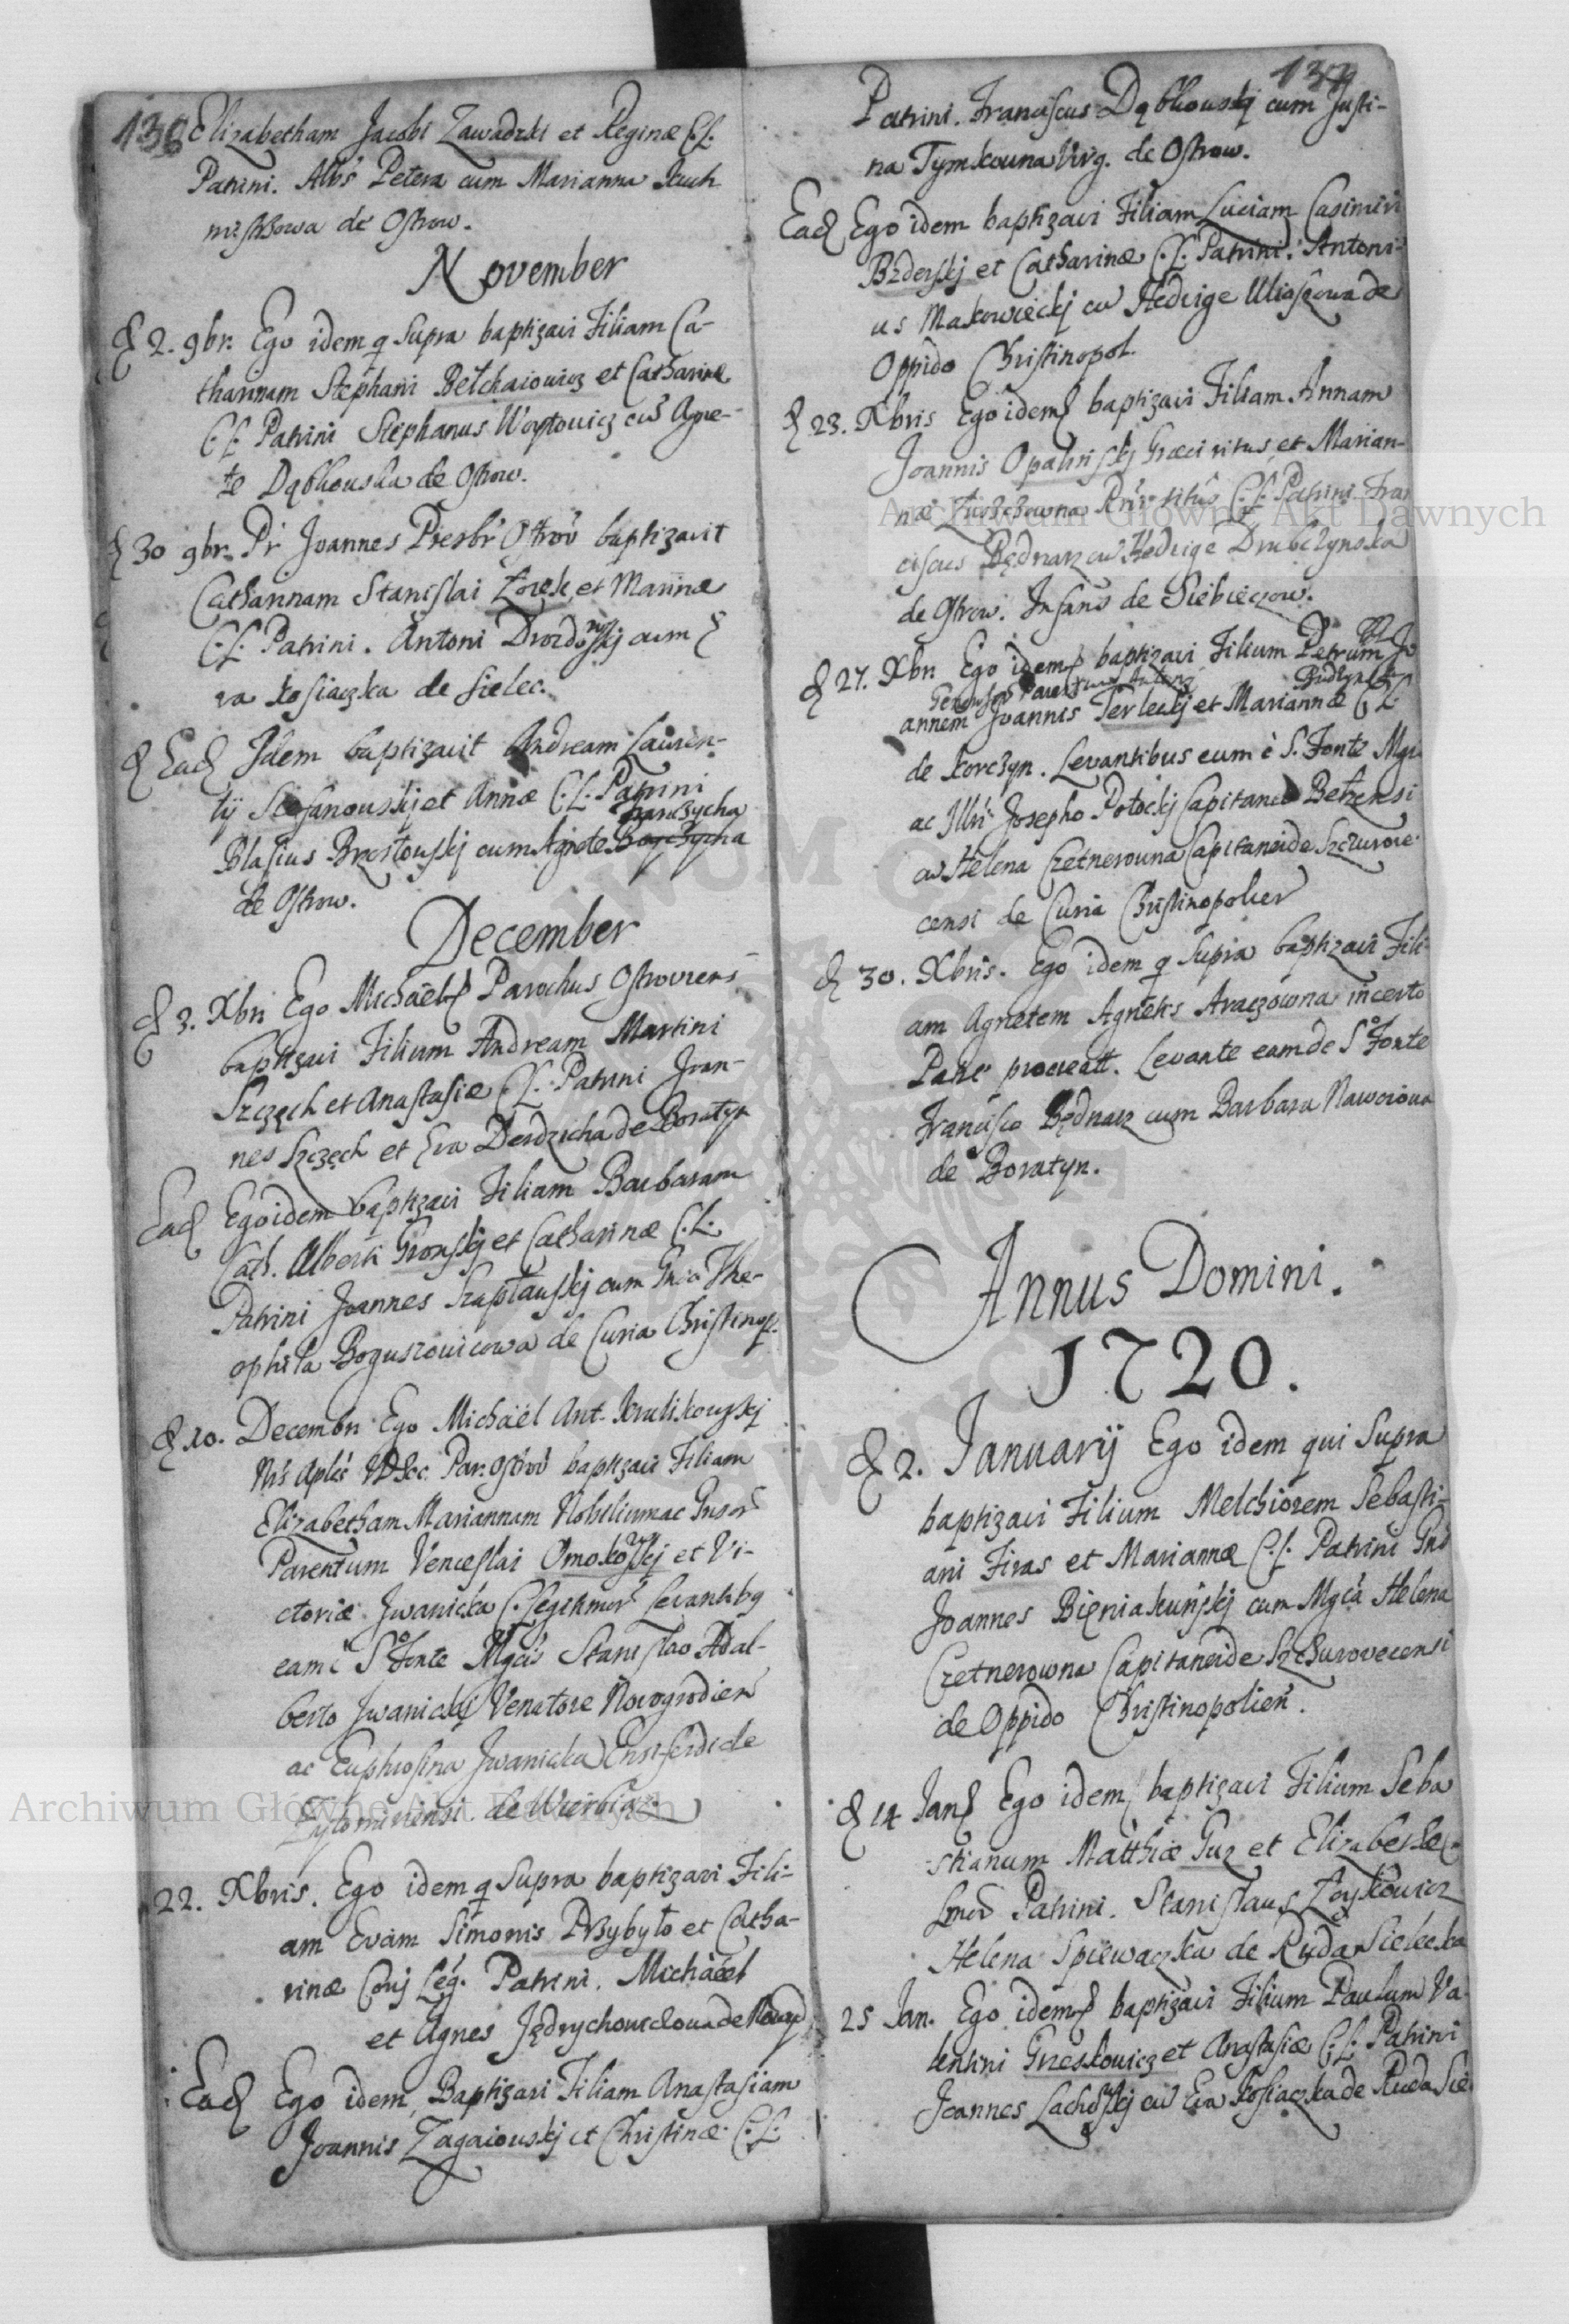 136
Elizabetham Jacobi Zawadzki et Reginæ C.L.
Patrini. Albs Petera cum Marianna Kuch
mistrzowa de Ostrow.
November
D 2. 9br. Ego idem q Supra baptizavi Filiam Ca-
tharinam Stephani Bełchaiowicz et Catharinæ
C.L. Patrini Stephanus Woytowicz cu Agne-
te Dąbkouska de Ostrow.
D 30 9br. Pr Joannes Presbr Ostrov baptizavit
Catharinam Stanislai Żoręk et Marinæ
C.L. Patrini. Antoni Drozdowskj cum E
va Kosiaczka de Sielec.
D Ead Idem baptizavit Andream Lauren-
tij Stefanouskj et Annæ C.L. Patrini
Blasius Brzostouskj cum Agnete
de Ostrow.
December
D 3. Xbri Ego Michaël Parochus Ostroviens
baptizavi Filium Andream Martini
Szczęch et Anastasiæ C.L. Patrini Joan-
nes Szczęch et Eva Derdzicha de Boratyn
Ead Ego idem baptizavi Filiam Barbaram
Cath. Alberti Gronskj et Catharinæ C.L.
Patrini Joannes Szaptauskj cum Gnsa The-
ophila Boguszouicowa de Curia Christinop.
D 10. Decembri Ego Michaël Ant. Krulikowskj
Ns Aplcs Par. Ostrov baptizavi Filiam
Elizabetham Mariannam Nobilium ac Gnsor
Parentum Venceslai Omoko et Vi-
ctoriæ Jwanicka C. Legitimor Levantibg
eam è S Fonte Mgcis Stanislao Adal-
berto Jwanickj Venatore Novogrodien
ac Euphrosina Jwanicka Ensiferide
Zytomiriensi de Wierbiąż
22. Xbris. Ego idem q Supra baptizavi Fili-
am Evam Simonis Przybyło et Catha-
rinæ Conj Leg. Patrini. Michäel
et Agnes Jędrychowclowa de
Ead Ego idem Baptizavi Filiam Anastasiam
Joannis Zagaiouskj et Christinæ C.L.
137
Patrini. Franciscus Dąbkouskj cum Justi-
na Tymkouna Virg. de Ostrow.
Ead Ego idem baptizavi Filiam Luciam Casimiri
Bzderskj et Catharinæ C.L. Patrini. Antoni-
us Makowieckj cu Hedvige Uliaszowa de
Oppido Christinopol.
D 23. Xbris Ego idem baptizavi Filiam Annam
Joannis Opalinskj Græci ritus et Marian-
næ ritus C.L. Patrini Fran
ciscus Będnarz cu Hedvige Drubczynska
de Ostrow. Infans de Siebieczow.
D 27. Xbri Ego idem baptizavi Filium Petrum Jo
annem Joannis Terleckj et Mariannæ C.L.
de Korczyn. Levantibus eum è S. Fonte Mgco
ac Illri Josepho Potockj Capitaneo Bełzensi
cu Helena Czetnerouna Capitaneide Szczurove
censi de Curia Christinopolien
D 30. Xbris. Ego idem q Supra baptizavi Fili-
am Agnetem Agnetis Araczowna incerto
Patre procreatt. Levante eam de So Fonte
Francisco Będnarz cum Barbara Nawoiowa
de Boratyn.
Annus Domini.
1720.
D 2. Januarij Ego idem qui Supra
baptizavi Filium Melchiorem Sebasti-
ani Firas et Mariannæ C.L. Patrini Gns
Joannes Bieniakuńskj cum Mgca Helena
Czetnerowna Capitaneide Szczurovecensi
de Oppido Christinopolien.
D 14 Jan Ego idem baptizavi Filium Seba
stianum Matthiæ Guz et Elizabethæ C.
Patrini. Stanislaus Zoyskowicz
Helena Spiewaczka de Ruda Sielecka
25 Jan. Ego idem baptizavi Filium Paulum Va-
lentini Grzeskowicz et Anastasiæ C.L. Patrini
Joannes Lachoskj cu Eva Kosiaczka de Ruda Sie
Archiwum Główne Akt Dawnych
Archiwum Główne Akt Dawnych